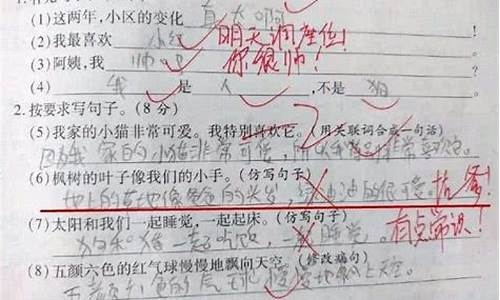 (1)这两年,小区的变化 真大啊
(2)我最喜欢 小红 明天调座位!
(3)阿姨,我 帅吧 你很帅!
(4) 我 是 人 ,不是 狗
2.按要求写句子。(8分)
(5)我家的小猫非常可爱。我特别喜欢它。(用关联词合成一句话)
因为我家的小猫非常可爱,所以我 非常喜欢它。
(6)枫树的叶子像我们的小手。(仿写句子)
地上的草地像爸爸的头发,绿油油的很可爱。 找爹!
(7)太阳和我们一起睡觉,一起起床。(仿写句子)
狗和猪一起吃饭,一起睡觉。 有点常识!
(8)五颜六色的红气球慢慢地飘向天空。(修改病句)
五颜六色的气球慢慢地飘上天空。